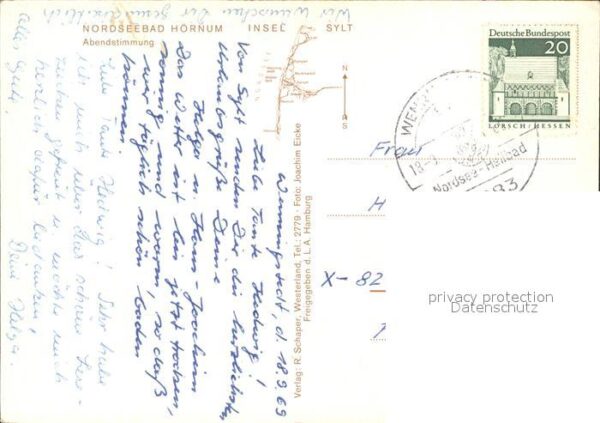 NORDSEEBAD HÖRNUM INSEL SYLT
Abendstimmung
N
S
Deutsche Bundespost
20
LORSCH/HESSEN
Nordsee-Heilbad
Wenningstedt, d. 18.9.69
Liebe Tante Hedwig!
Von Sylt senden Dir die herzlichsten
Urlaubsgrüße Deine
Helga u. Hans-Joachim
Das Wetter ist bis jetzt trocken,
sonnig und warm, so daß
wir täglich schön baden
können.
Liebe Tante Hedwig! Sehr habe
ich mich über das schöne
gefreut u. möchte mich
herzlich dafür bedanken,
Deine Helga.
Alles Gute,
Wir wünschen Dir gesundheitlich
Verlag: R. Schaper, Westerland, Tel.: 2779 · Foto: Joachim Eicke
Freigegeben d. L. A. Hamburg
Frau
H
X-82
privacy protection
Datenschutz